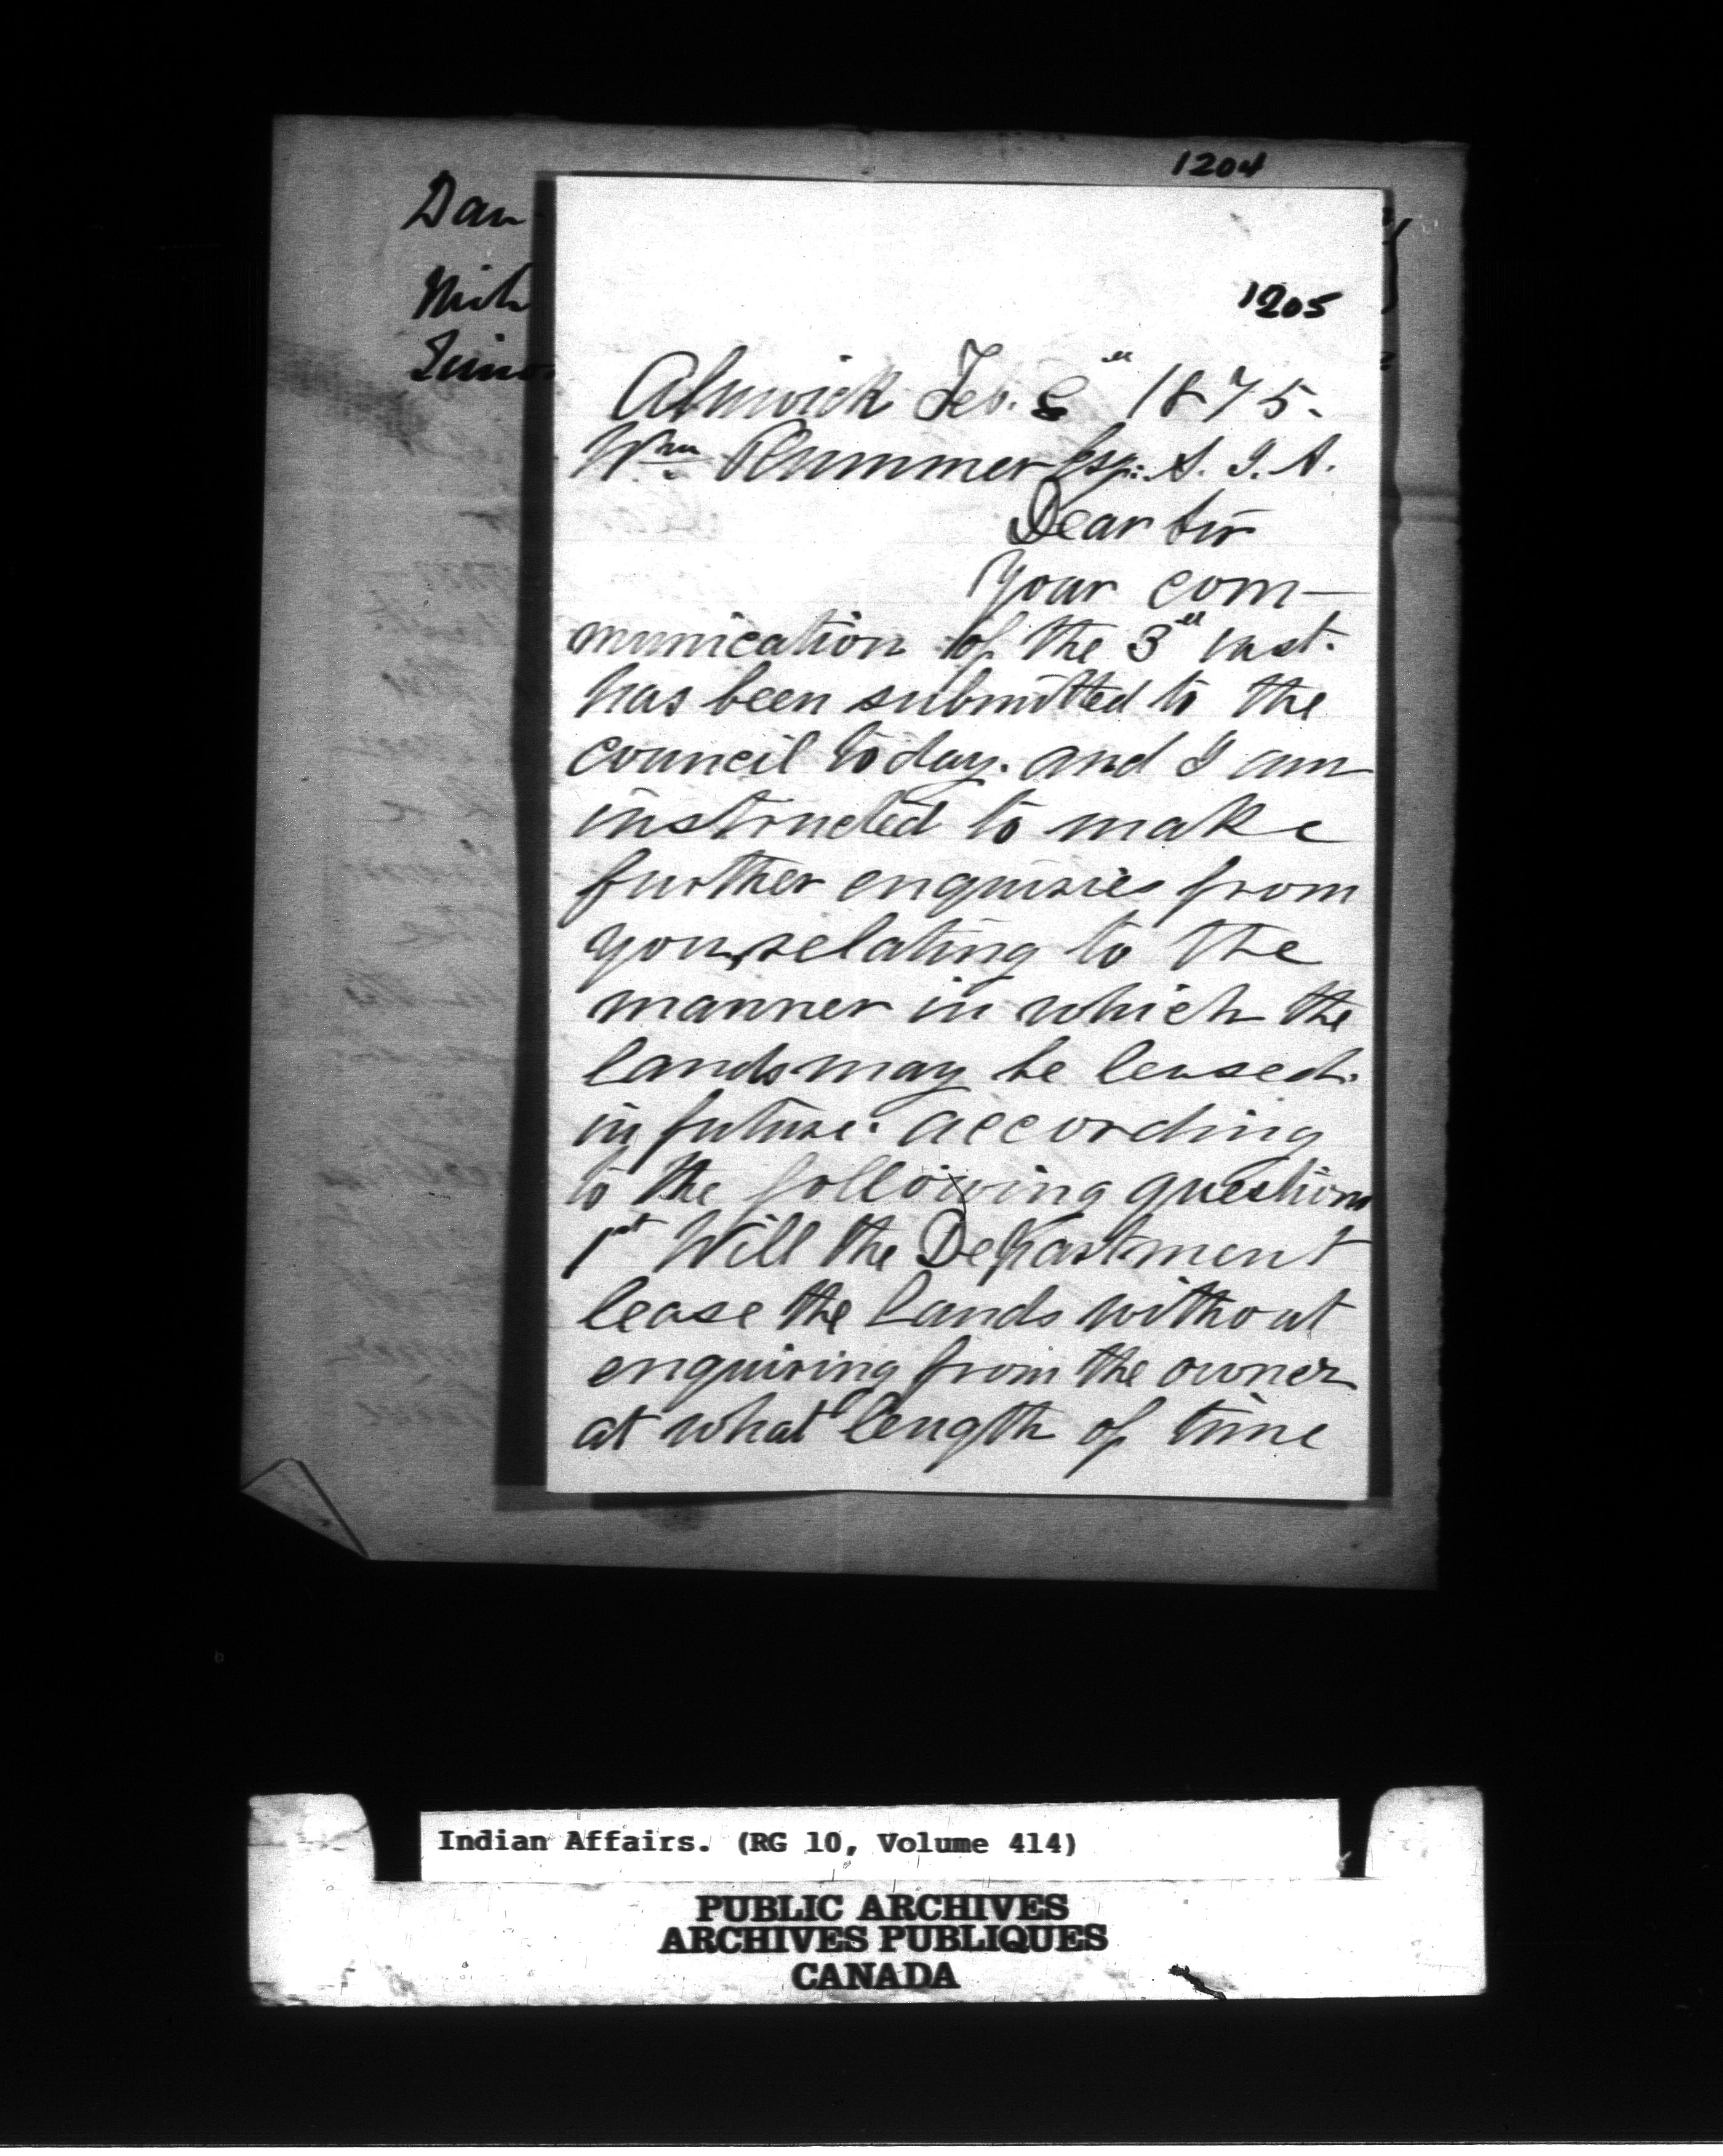 1204
Dan
Nich
1205
Alnwick Feb. 8" 1875.
Wm Plummer Esq: S. I. A.
Dear Sir
Your com-
munication of the 3" inst.
has been submitted to the
council today. and I am
instructed to make
further enquiries from
you, relating to the
manner in which the
lands may be leased.
in future. according
to the following questions
1st Will the Department
lease the Lands without
enquiring from the owner
at what length of time
Indian Affairs. (RG 10, Volume 414)
PUBLIC ARCHIVES
ARCHIVES PUBLIQUES
CANADA